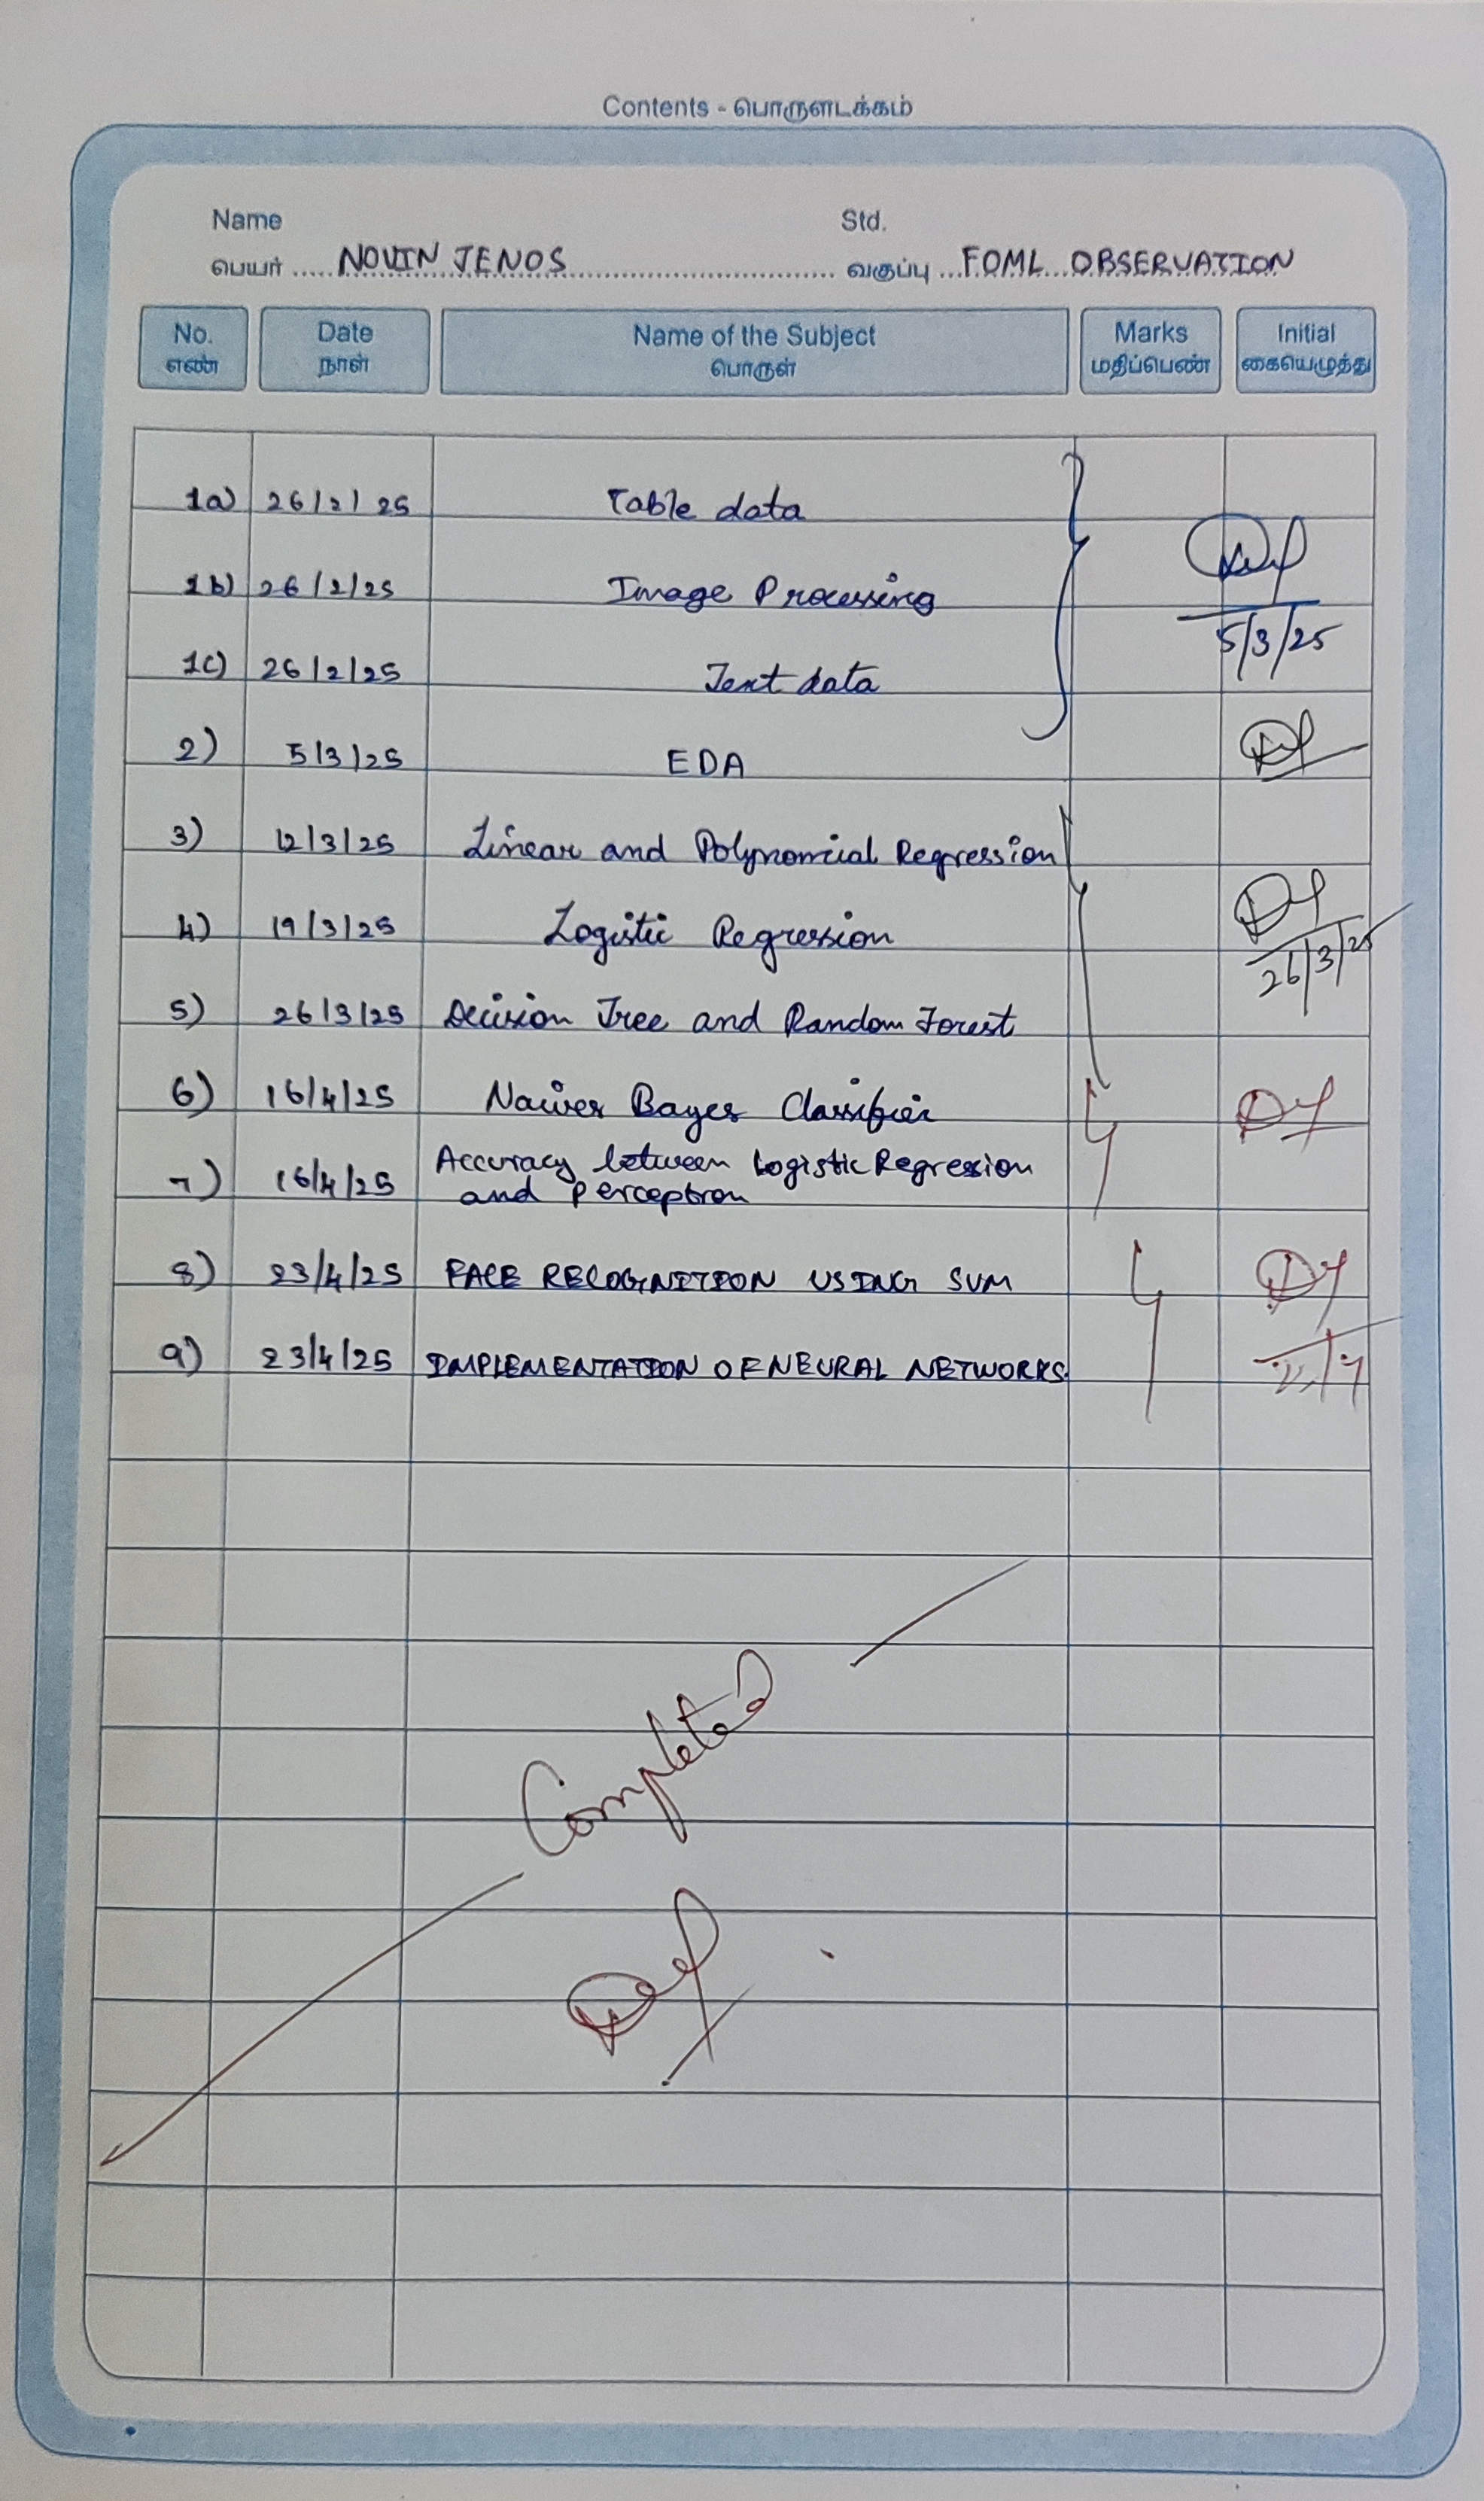 Contents - பொருளடக்கம்
Name Std.
பெயர் NOVIN JENOS வகுப்பு FOML OBSERVATION
No. Date Name of the Subject Marks Initial
எண் நாள் பொருள் மதிப்பெண் கையெழுத்து
1a) 26/2/25 Table data
1b) 26/2/25 Image Processing
5/3/25
1c) 26/2/25 Text data
2) 5/3/25 EDA
3) 12/3/25 Linear and Polynomial Regression
4) 19/3/25 Logistic Regression
26/3/25
5) 26/3/25 Decision Tree and Random Forest
6) 16/4/25 Naives Bayes Classifier
Accuracy between Logistic Regression
7) 16/4/25 and perceptron
8) 23/4/25 FACE RECOGNITION USING SVM
9) 23/4/25 IMPLEMENTATION OF NEURAL NETWORKS.
Completed